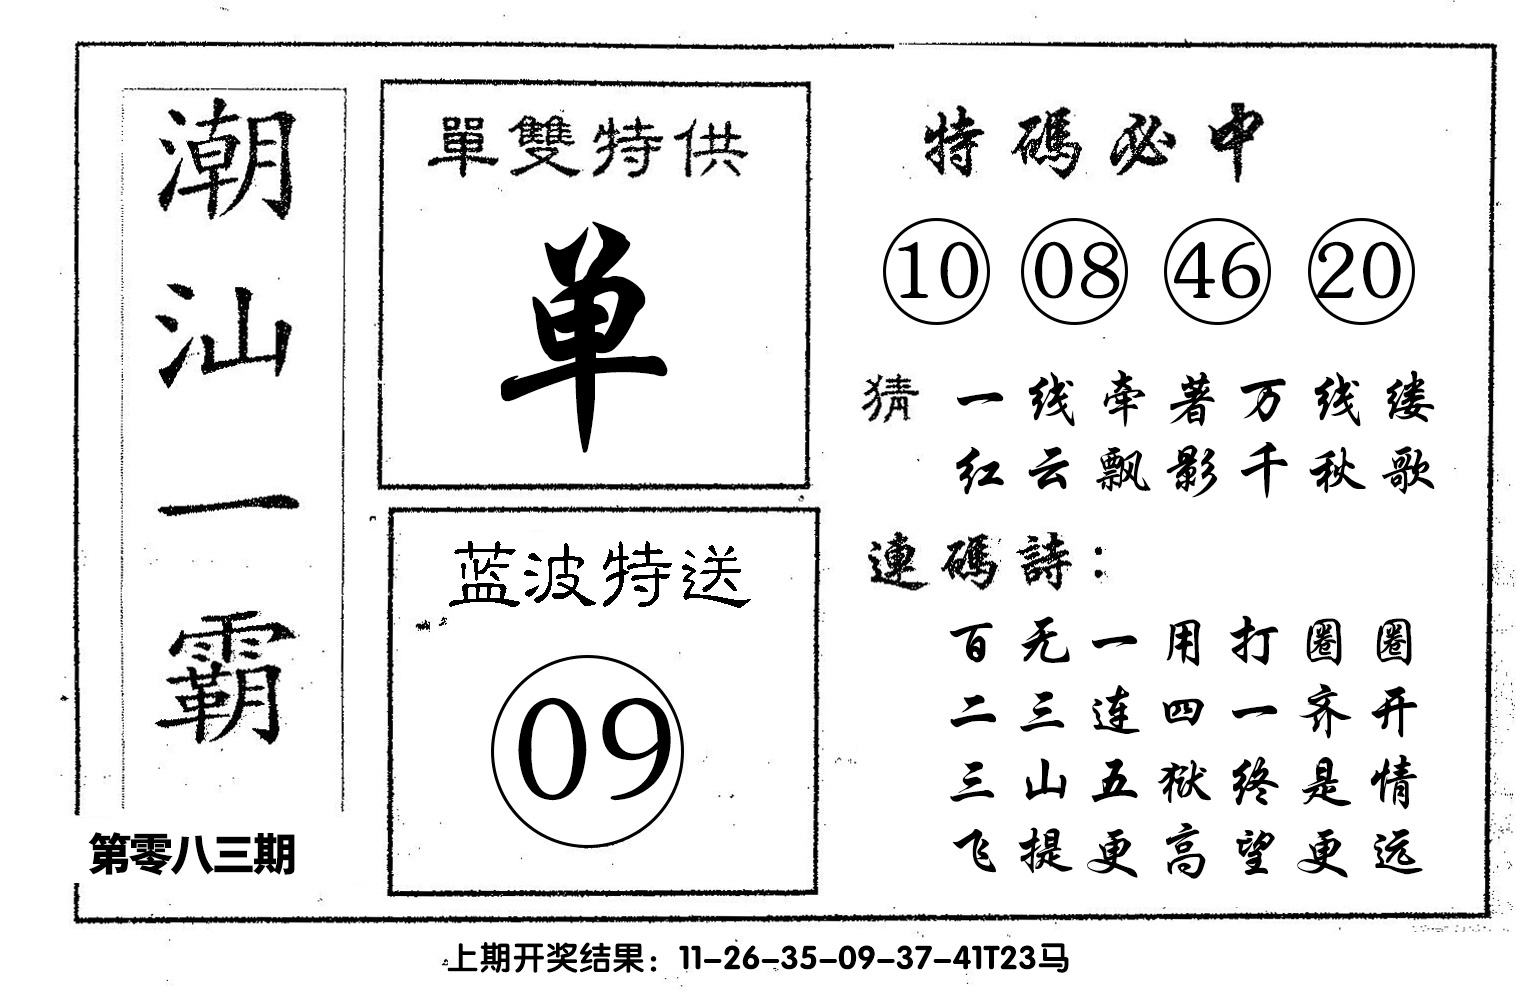 潮汕一霸
第零八三期
單雙特供
单
蓝波特送
09
特碼必中
10 08 46 20
猜 一线牵著万线缕
红云飘影千秋歌
連碼詩：
百无一用打圈圈
二三连四一齐开
三山五狱终是情
飞提更高望更远
上期开奖结果：11-26-35-09-37-41T23马